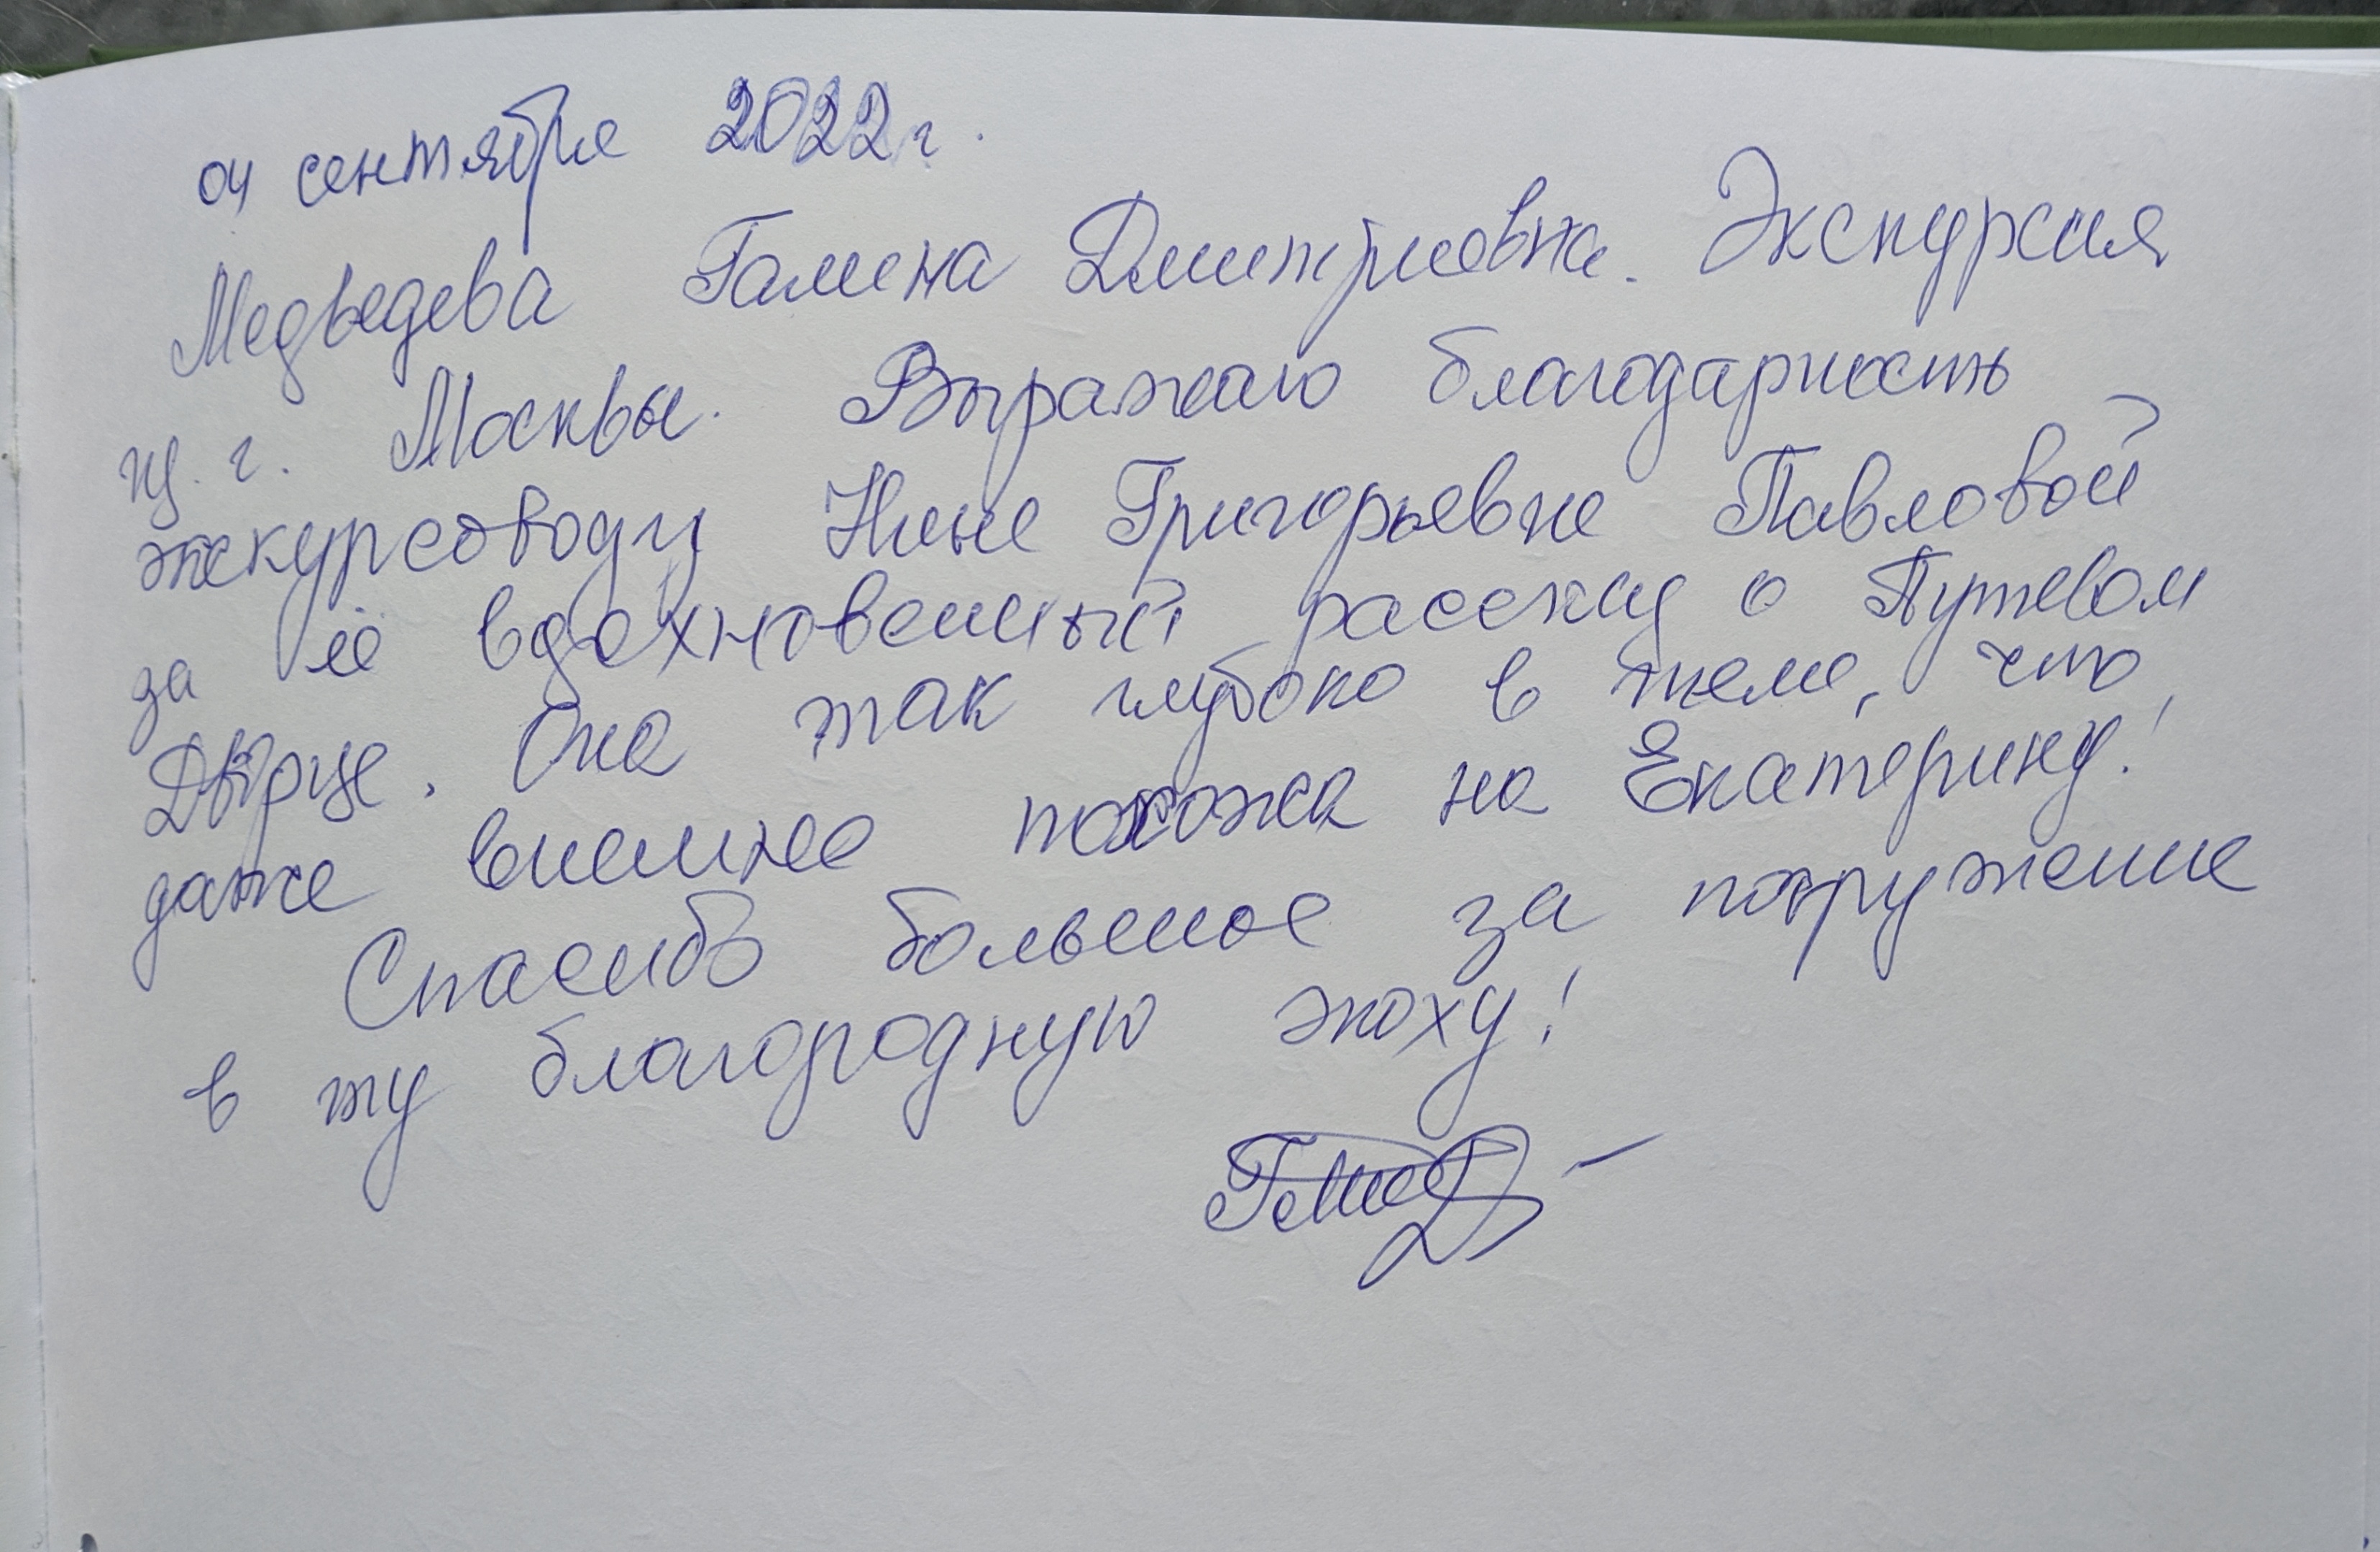 04 сентября 2022 г.
Медведева Галина Дмитриевна. Экскурсия
из г. Москвы. Выражаю благодарность
экскурсоводу Нине Григорьевне Павловой
за её вдохновенный рассказ о Путевом
Дворце. Она так глубоко в теме, что
даже внешне похожа на Екатерину!
Спасибо большое за погружение
в ту благородную эпоху!